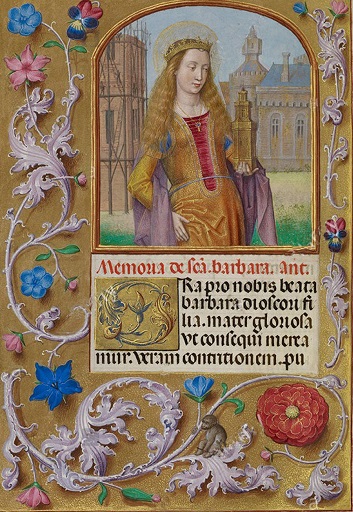 Memoria de scā. barbara. Ant.
ORa pro nobis beata
barbara dioscori fi
lia. mater gloriosa
ut consequi merea
mur. veram contritionem. pu